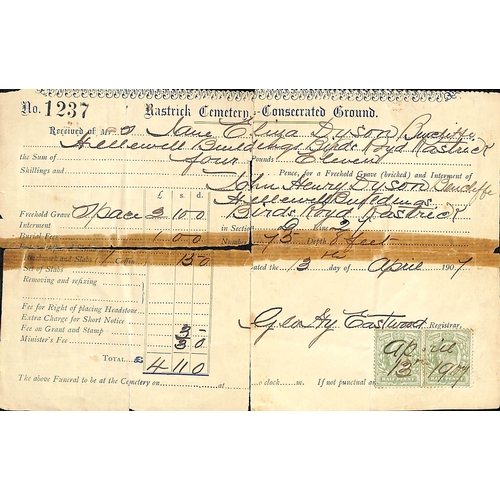 No. 1237 Rastrick Cemetery.—Consecrated Ground.
Received of Mrs Jane Eliza Dyson
Hellewell Buildings Birds Royd Rastrick
the Sum of four Pounds Eleven
Shillings and Pence, for a Freehold Grave (bricked) and Interment of
John Henry Dyson
£ s. d. Hellewell Buildings
Freehold Grave Space 2 10 0 Birds Royd Rastrick
Interment in Section
Burial Fees 1 0 0 Number 75 Depth 8 feet
15 0 Dated the 13th day of April 1907
Set of Slabs
Removing and refixing
Fee for Right of placing Headstone
Extra Charge for Short Notice Geo Hy Eastwood Registrar,
Fee on Grant and Stamp
Minister's Fee
TOTAL £ 4 11 0
April
13 1907
HALF PENNY HALF PENNY
The above Funeral to be at the Cemetery on at o clock If not punctual an